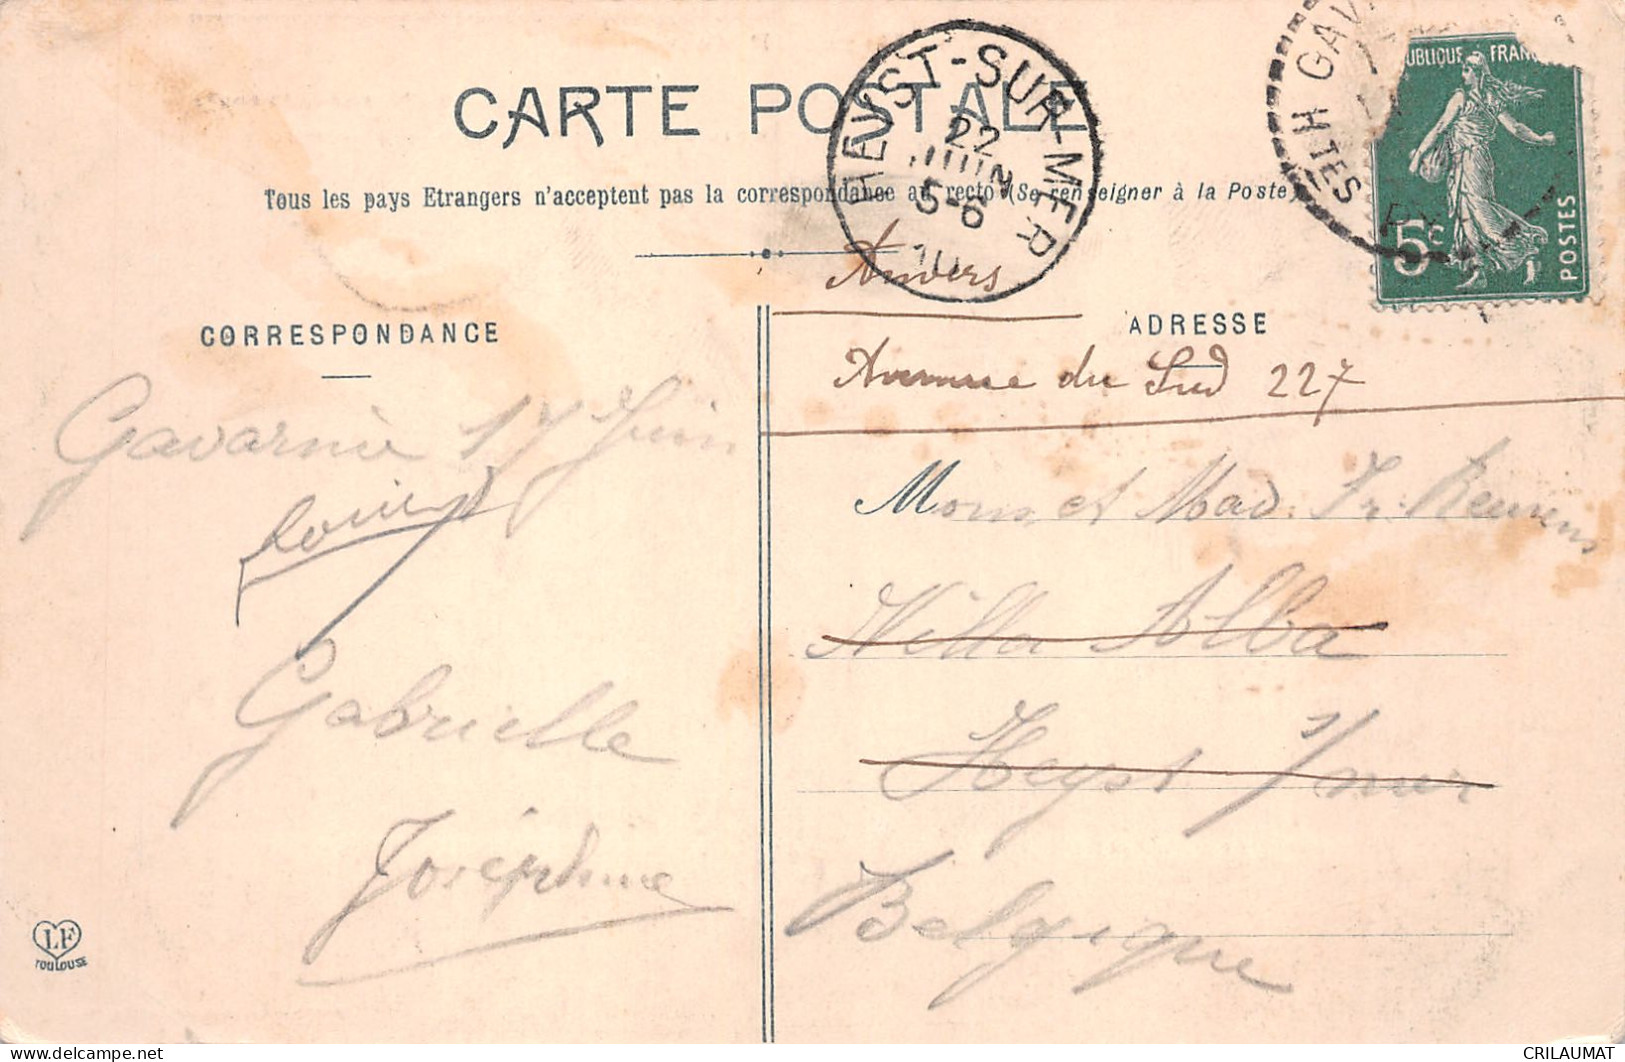 CARTE POSTALE
Tous les pays Etrangers n'acceptent pas la correspondance au recto (Se renseigner à la Poste)
HEYST-SUR-MER
22
JUIN
5-6
10
GAV
H
TES PY
RÉPUBLIQUE FRANÇ
5c
POSTES
CORRESPONDANCE
ADRESSE
Anvers
Avenue du Sud 227
Gavarnie 17 Juin
Louis
Gabrielle
Joséphine
Mons et Mad. Fr. Reurens
Villa Alba
Heyst s/mer
Belgique
LF
TOULOUSE
CRILAUMAT